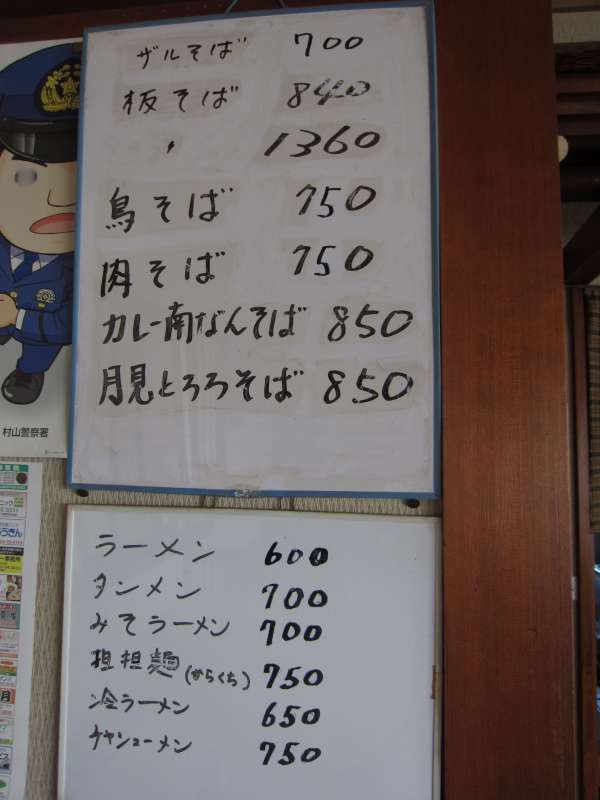 ザルそば 700
板そば 840
〃 1360
鳥そば 750
肉そば 750
カレー南なんそば 850
月見とろろそば 850
村山警察署
ラーメン 600
タンメン 700
みそラーメン 700
担担麺(からくち) 750
冷ラーメン 650
チャシューメン 750